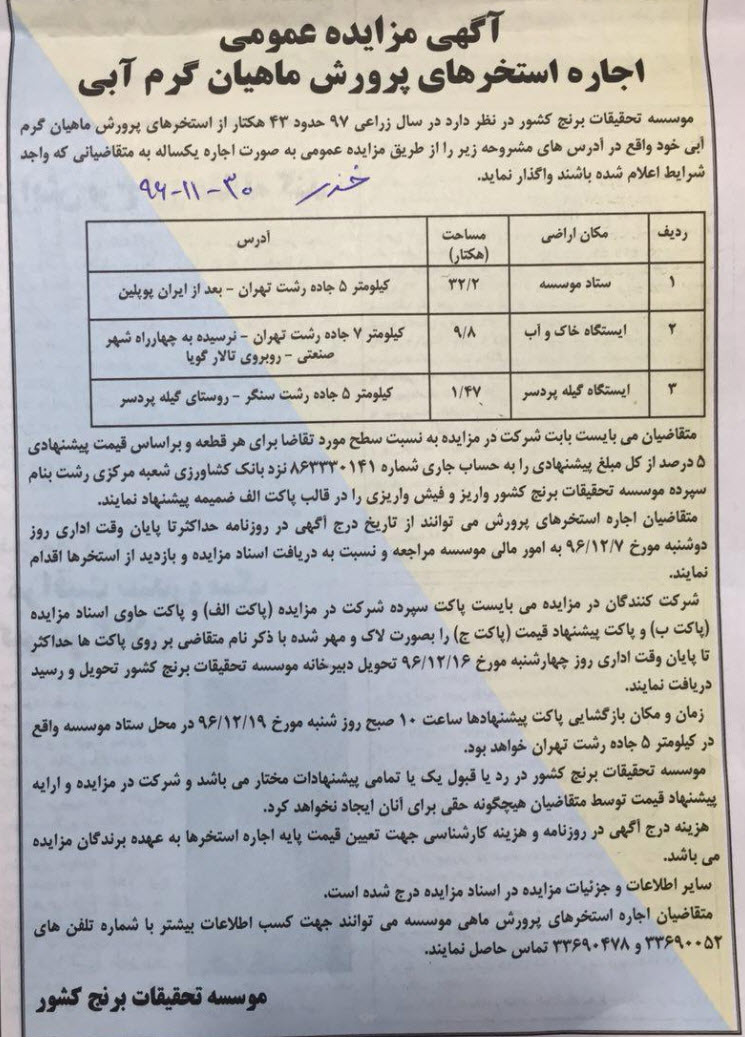 آگهی مزایده عمومی
اجاره استخرهای پرورش ماهیان گرم آبی
موسسه تحقیقات برنج کشور در نظر دارد در سال زراعی ۹۷ حدود ۴۳ هکتار از استخرهای پرورش ماهیان گرم
آبی خود واقع در آدرس های مشروحه زیر را از طریق مزایده عمومی به صورت اجاره یکساله به متقاضیانی که واجد
شرایط اعلام شده باشند واگذار نماید.
خزر ۹۶-۱۱-۳۰
ردیف مکان اراضی مساحت (هکتار) آدرس
۱ ستاد موسسه ۳۲/۲ کیلومتر ۵ جاده رشت تهران - بعد از ایران پوپلین
۲ ایستگاه خاک و آب ۹/۸ کیلومتر ۷ جاده رشت تهران - نرسیده به چهارراه شهر
صنعتی - روبروی تالار گویا
۳ ایستگاه گیله پردسر ۱/۴۷ کیلومتر ۵ جاده رشت سنگر - روستای گیله پردسر
متقاضیان می بایست بابت شرکت در مزایده به نسبت سطح مورد تقاضا برای هر قطعه و براساس قیمت پیشنهادی
۵ درصد از کل مبلغ پیشنهادی را به حساب جاری شماره ۸۶۳۳۳۰۱۴۱ نزد بانک کشاورزی شعبه مرکزی رشت بنام
سپرده موسسه تحقیقات برنج کشور واریز و فیش واریزی را در قالب پاکت الف ضمیمه پیشنهاد نمایند.
متقاضیان اجاره استخرهای پرورش می توانند از تاریخ درج آگهی در روزنامه حداکثرتا پایان وقت اداری روز
دوشنبه مورخ ۹۶/۱۲/۷ به امور مالی موسسه مراجعه و نسبت به دریافت اسناد مزایده و بازدید از استخرها اقدام
نمایند.
شرکت کنندگان در مزایده می بایست پاکت سپرده شرکت در مزایده (پاکت الف) و پاکت حاوی اسناد مزایده
(پاکت ب) و پاکت پیشنهاد قیمت (پاکت ج) را بصورت لاک و مهر شده با ذکر نام متقاضی بر روی پاکت ها حداکثر
تا پایان وقت اداری روز چهارشنبه مورخ ۹۶/۱۲/۱۶ تحویل دبیرخانه موسسه تحقیقات برنج کشور تحویل و رسید
دریافت نمایند.
زمان و مکان بازگشایی پاکت پیشنهادها ساعت ۱۰ صبح روز شنبه مورخ ۹۶/۱۲/۱۹ در محل ستاد موسسه واقع
در کیلومتر ۵ جاده رشت تهران خواهد بود.
موسسه تحقیقات برنج کشور در رد یا قبول یک یا تمامی پیشنهادات مختار می باشد و شرکت در مزایده و ارایه
پیشنهاد قیمت توسط متقاضیان هیچگونه حقی برای آنان ایجاد نخواهد کرد.
هزینه درج آگهی در روزنامه و هزینه کارشناسی جهت تعیین قیمت پایه اجاره استخرها به عهده برندگان مزایده
می باشد.
سایر اطلاعات و جزئیات مزایده در اسناد مزایده درج شده است.
متقاضیان اجاره استخرهای پرورش ماهی موسسه می توانند جهت کسب اطلاعات بیشتر با شماره تلفن های
۳۳۶۹۰۰۵۲ و ۳۳۶۹۰۴۷۸ تماس حاصل نمایند.
موسسه تحقیقات برنج کشور